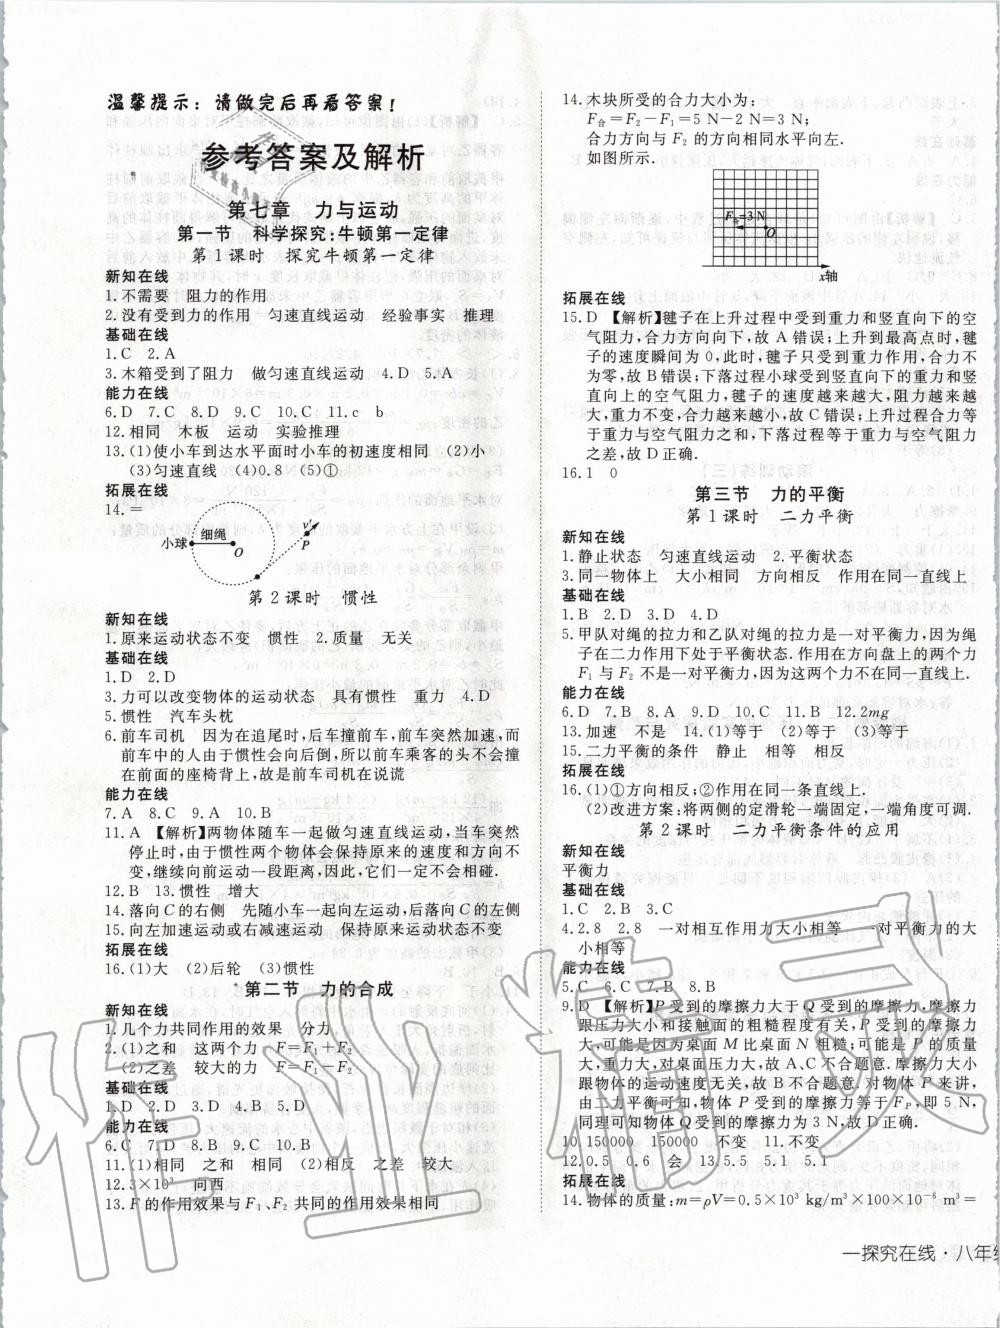 温馨提示:请做完后再看答案!
参考答案及解析
第七章 力与运动
第一节 科学探究:牛顿第一定律
第1课时 探究牛顿第一定律
新知在线
1.不需要 阻力的作用
2.没有受到力的作用 匀速直线运动 经验事实 推理
基础在线
1.C 2.A
3.木箱受到了阻力 做匀速直线运动 4.D 5.A
能力在线
6.D 7.C 8.D 9.C 10.C 11.c b
12.相同 木板 运动 实验推理
13.(1)使小车到达水平面时的初速度相同 (2)小
(3)匀速直线 (4)0.8 (5)①
拓展在线
14.=
小球 细绳 O v P
第2课时 惯性
新知在线
1.原来运动状态不变 惯性 2.质量 无关
基础在线
1.D 2.D
3.力可以改变物体的运动状态 具有惯性 重力 4.D
5.惯性 汽车头枕
6.前车司机 因为在追尾时,后车撞前车,前车突然加速,而
前车中的人由于惯性会向后倒,所以前车乘客的头不会撞
在前面的座椅背上,故前车司机在说谎
能力在线
7.A 8.C 9.A 10.B
11.A 【解析】两物体随车一起做匀速直线运动,当车突然
停止时,由于惯性两个物体会保持原来的速度和方向不
变,继续向前运动一段距离,因此,它们一定不会相碰.
12.B 13.惯性 增大
14.落向C的右侧 先随小车一起向左运动,后落向C的左侧
15.向左加速运动或右减速运动 保持原来运动状态不变
拓展在线
16.(1)大 (2)后轮 (3)惯性
第二节 力的合成
新知在线
1.几个力共同作用的效果 分力
2.(1)之和 这两个力 F=F₁+F₂
(2)之差 较大的力 F=F₁-F₂
基础在线
1.D 2.D 3.D 4.B 5.D
能力在线
6.C 7.D 8.B 9.C 10.B
11.(1)相同 之和 相同 (2)相反 之差 较大
12.3×10³ 向西
13.F的作用效果与F₁、F₂共同的作用效果相同
14.木块所受的合力大小为:
F合=F₂-F₁=5 N-2 N=3 N;
合力方向与F₂的方向相同水平向左.
如图所示.
F合=3 N
O
x轴
拓展在线
15.D 【解析】毽子在上升过程中受到重力和竖直向下的空
气阻力,合力方向向下,故A错误;上升到最高点时,毽
子的速度瞬间为0,此时,毽子只受到重力作用,合力不
为零,故B错误;下落过程小球受到竖直向下的重力和竖
直向上的空气阻力,毽子的速度越来越大,阻力越来越
大,重力不变,合力越来越小,故C错误;上升过程合力等
于重力与空气阻力之和,下落过程合力等于重力与空气阻力
之差,故D正确.
16.1 0
第三节 力的平衡
第1课时 二力平衡
新知在线
1.静止状态 匀速直线运动 2.平衡状态
3.同一物体上 大小相同 方向相反 作用在同一直线上
基础在线
1.B 2.D 3.D 4.D
5.甲队对绳的拉力和乙队对绳的拉力是一对平衡力,因为绳
子在二力作用下处于平衡状态.作用在方向盘上的两个力
F₁与F₂不是一对平衡力,因为这两个力不在同一直线上.
能力在线
6.D 7.B 8.A 9.D 10.C 11.B 12.2mg
13.加速 不是 14.(1)等于 (2)等于 (3)等于
15.二力平衡的条件 静止 相等 相反
拓展在线
16.(1)①方向相反;②作用在同一条直线上.
(2)改进方案:将两侧的定滑轮一端固定,一端角度可调.
第2课时 二力平衡条件的应用
新知在线
平衡力
基础在线
1.C 2.B 3.C
4.2.8 2.8 一对相互作用力大小相等 一对平衡力的大
小相等
能力在线
5.C 6.C 7.B 8.B
9.D 【解析】P受到的摩擦力大于Q受到的摩擦力,摩擦力
跟压力大小和接触面的粗糙程度有关,P受到的摩擦力
大,可能是因为桌面M比桌面N粗糙;可能是P的质量
大,重力大,对桌面压力大,故A、C不合题意.摩擦力大小
跟物体的运动速度无关,故B不合题意.对物体P来讲,
由二力平衡可知,物体P受到的摩擦力等于F_P,即5 N,
同理可知物体Q受到的摩擦力为3 N,故D正确.
10.150000 150000 不变 11.不变
12.0.5 0.6 会 13.5.5 5.1 5.1
拓展在线
14.物体的质量:m=ρV=0.5×10³ kg/m³×100×10⁻⁶ m³=
一探究在线·八年级